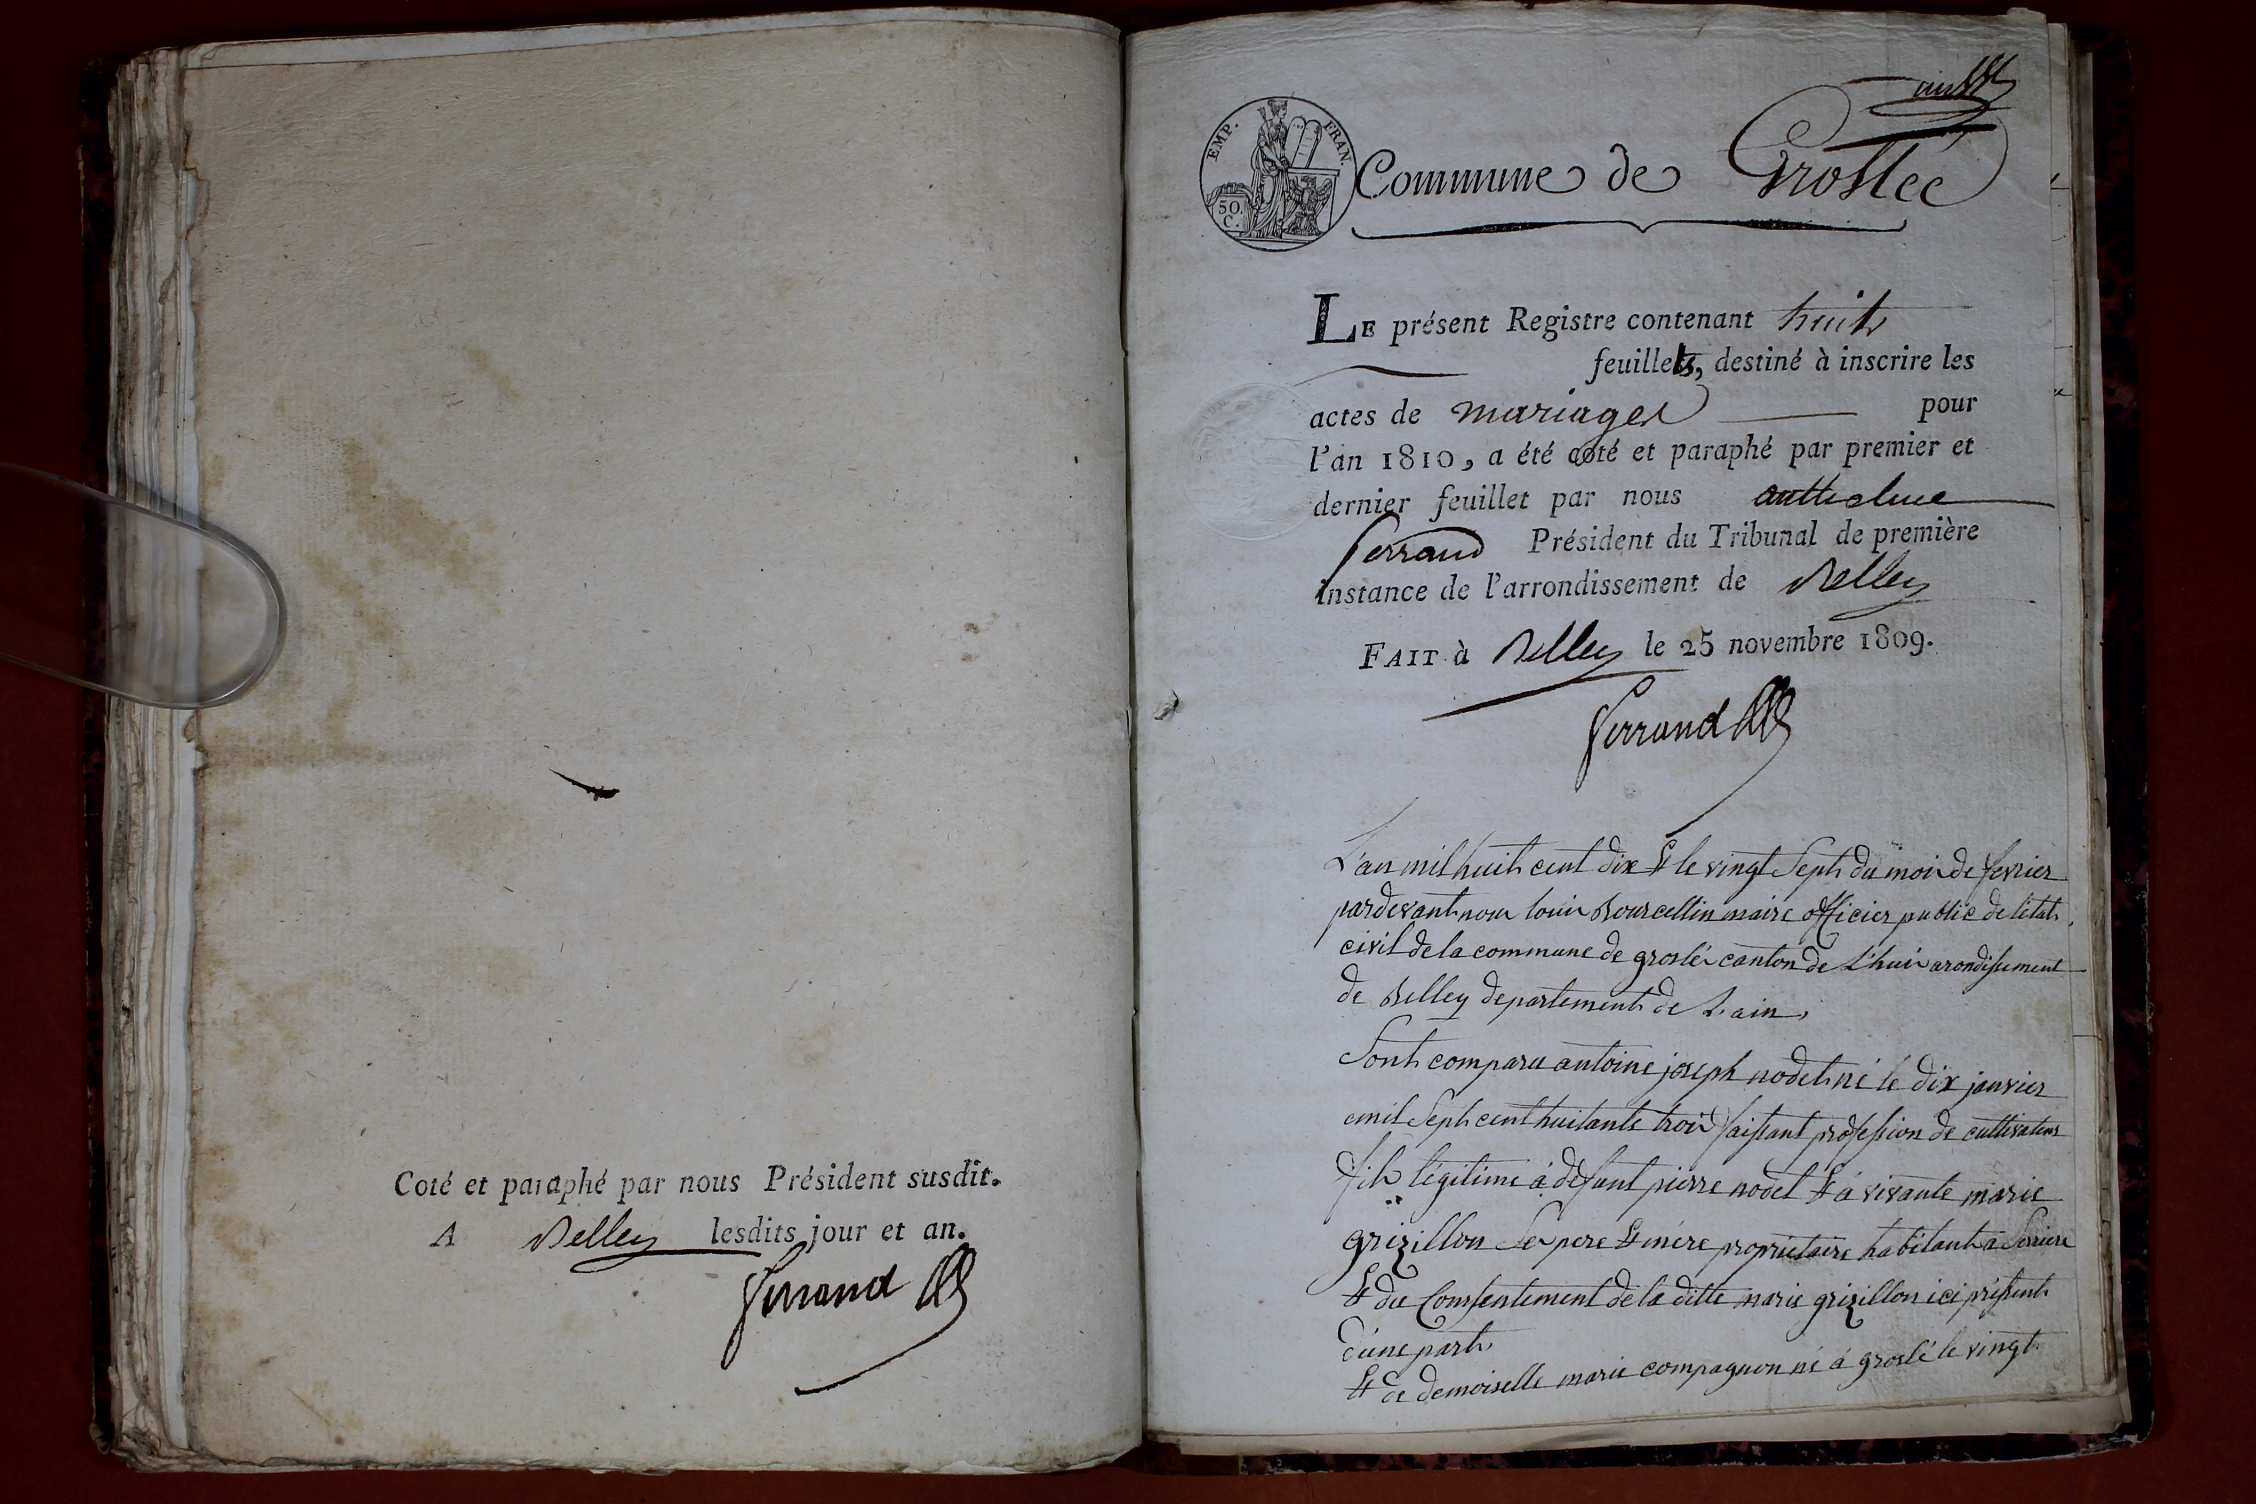 Coté et paraphé par nous Président susdit.
A Belley lesdits jour et an.
Ferrand
EMP. FRAN.
50.
C.
Commune de Groslée
LE présent Registre contenant huit
feuillets, destiné à inscrire les
actes de mariages pour
l'an 1810, a été coté et paraphé par premier et
dernier feuillet par nous anthelme
ferrand Président du Tribunal de première
instance de l'arrondissement de Belley
FAIT à Belley le 25 novembre 1809.
ferrand
L'an mil huit cent dix & le vingt Sept du moi de fevrier
pardevant nous louis Bourcellin maire officier public de létat
civil de la commune de groslée canton de L'huis arondissement
de Belley departement de L'ain,
Sont comparu antoine joseph nodet né le dix janvier
mil Sept cent huitante trois faissant profession de cultivateur
fils légitime á défunt pierre nodet & á vivante marie
grizillon Ses pere & mére propriétaire habitant a Serriere
& du Consentement de la ditte marie grizillon ici présent
d'une part
& de demoiselle marie compagnon né á groslé le vingt